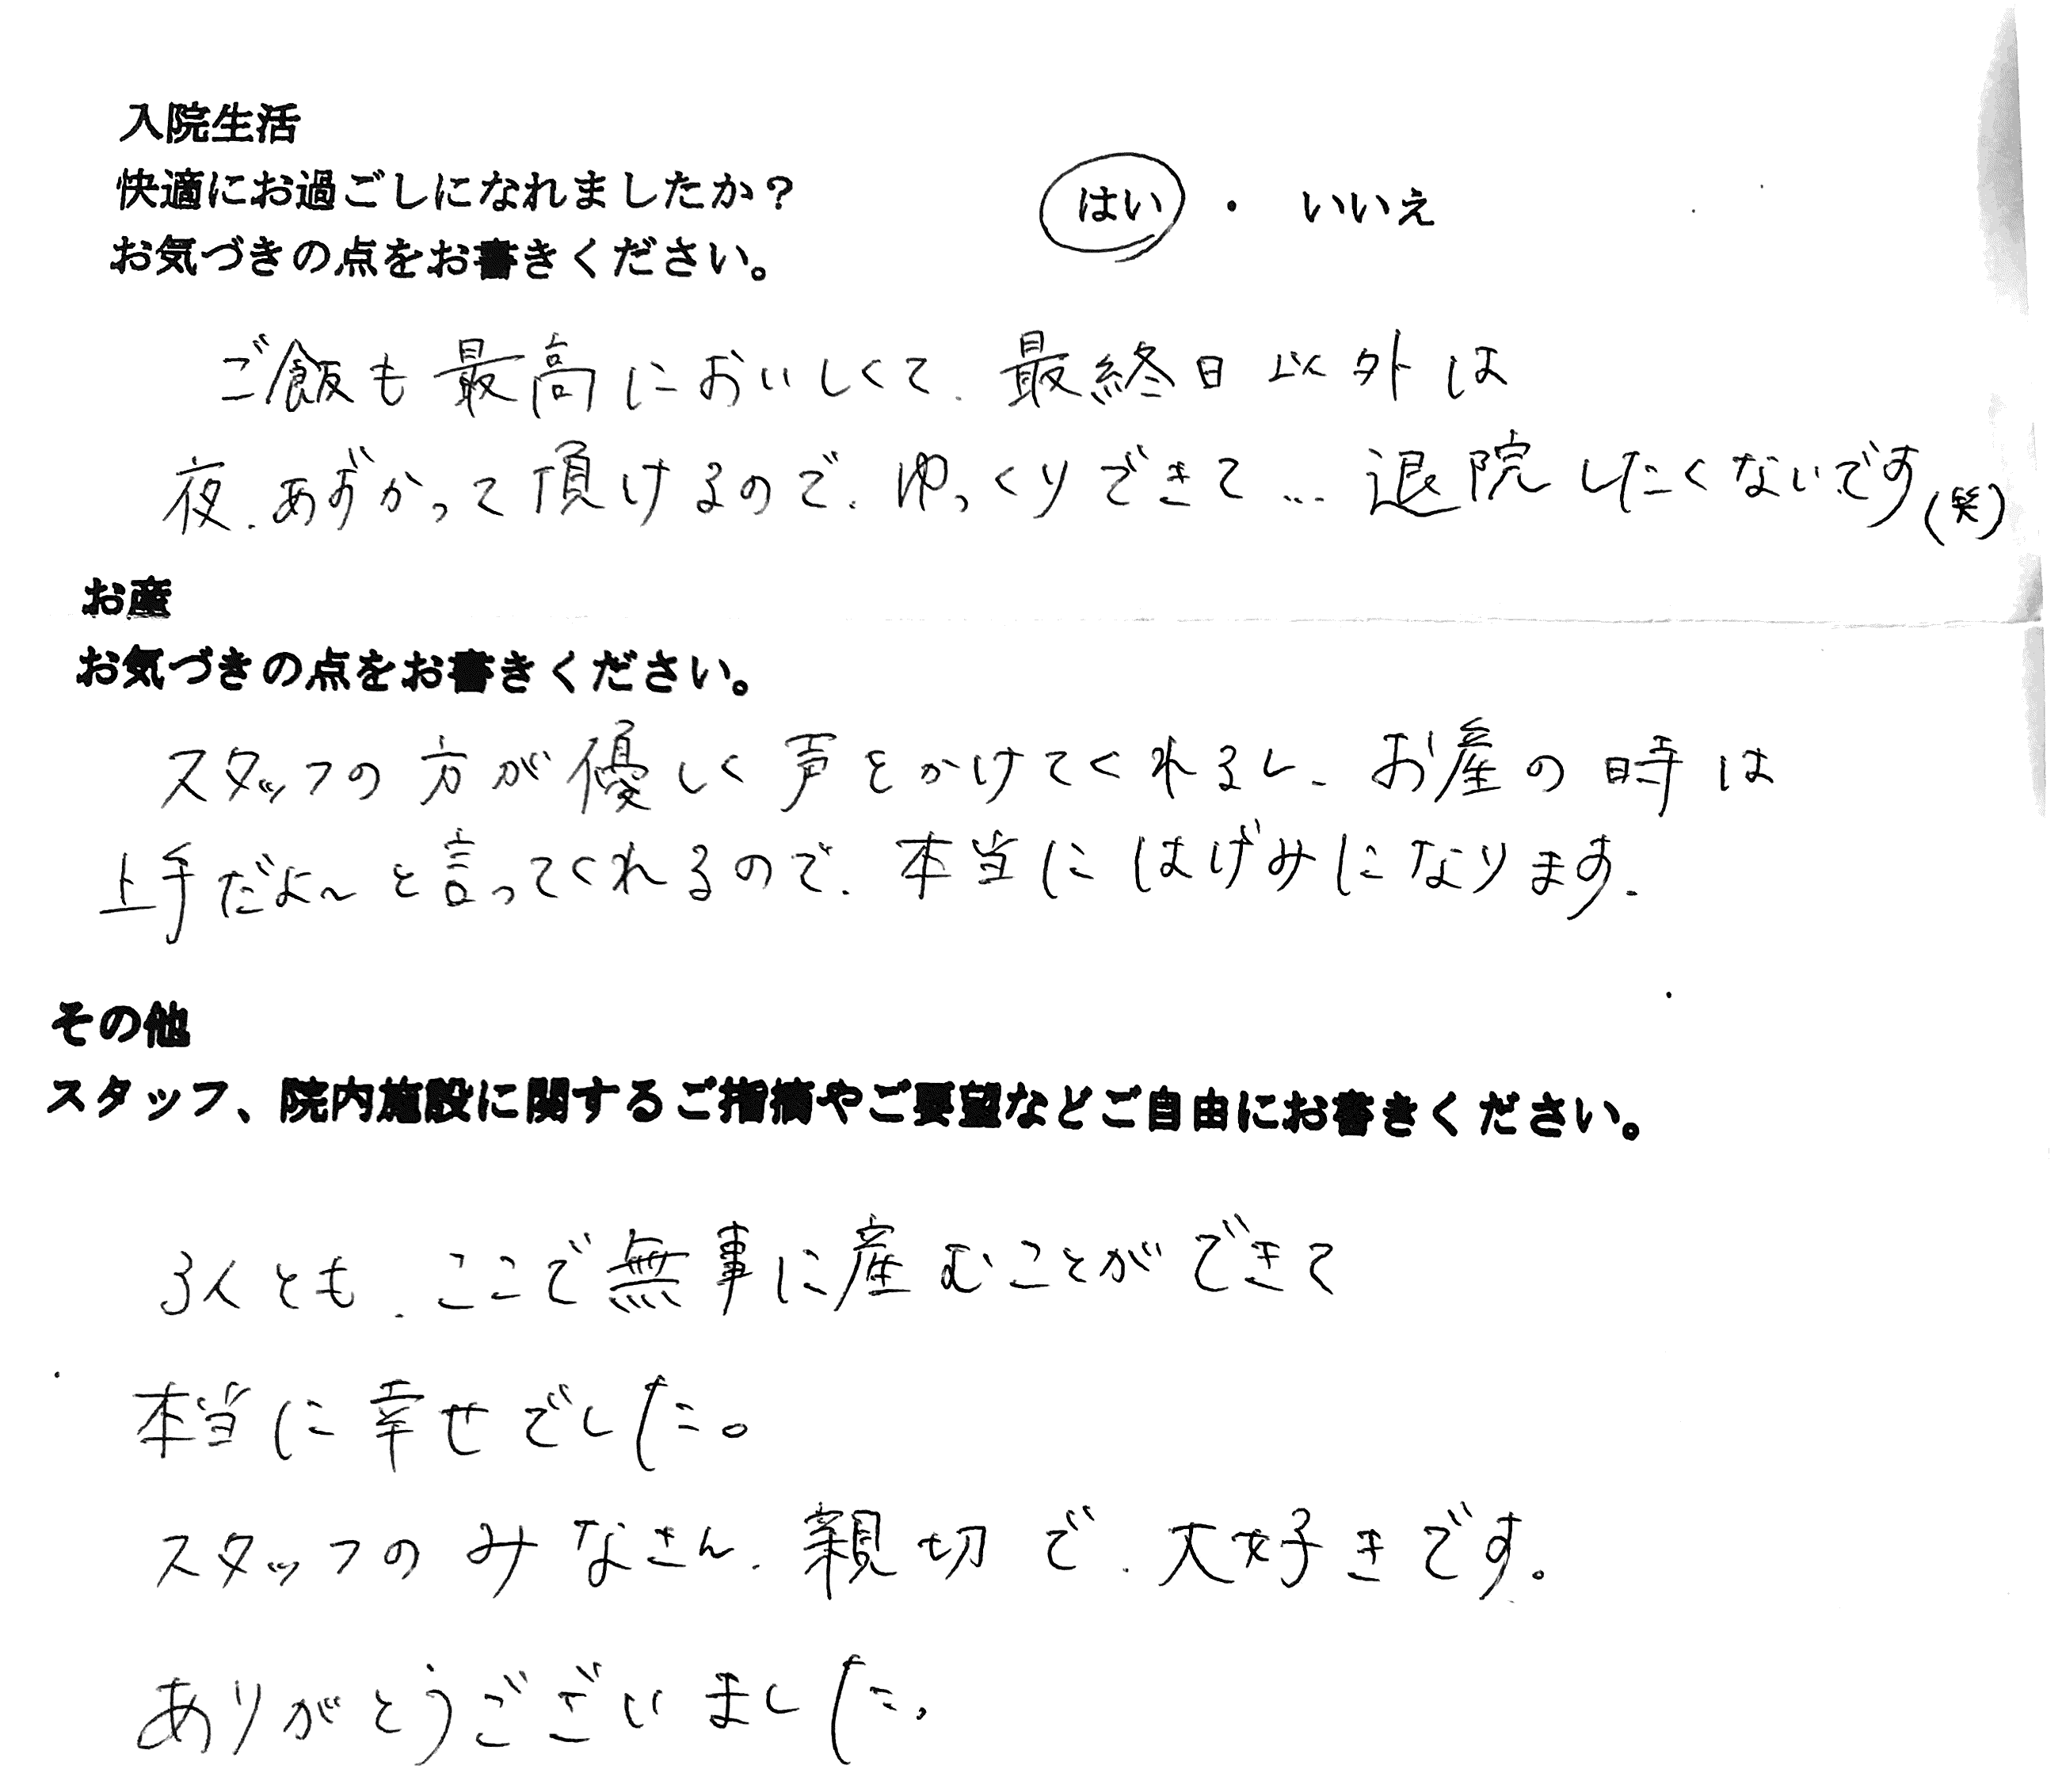 入院生活
快適にお過ごしになれましたか? はい ・ いいえ
お気づきの点をお書きください。
ご飯も最高においしくて、最終日以外は
夜、あずかって頂けるので、ゆっくりできて…退院したくないです(笑)
お産
お気づきの点をお書きください。
スタッフの方が優しく声をかけてくれるし、お産の時は
上手だよ~と言ってくれるので、本当にはげみになります。
その他
スタッフ、院内施設に関するご指摘やご要望などご自由にお書きください。
3人とも、ここで無事に産むことができて
本当に幸せでした。
スタッフのみなさん、親切で、大好きです。
ありがとうございました。